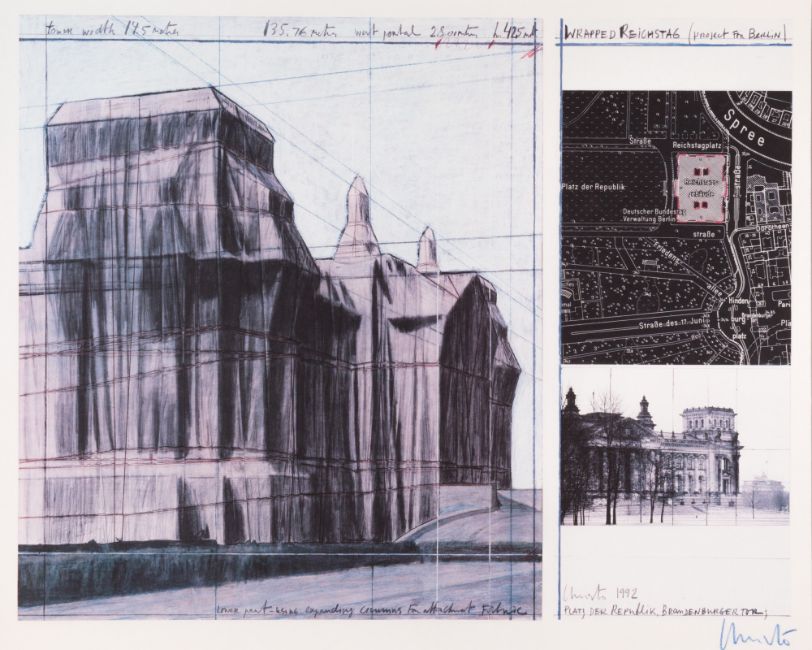 tower width 19.5 metres 135.76 metres west portal 28 metres h. 42.5 m
WRAPPED REICHSTAG (PROJECT FOR BERLIN)
Spree
Straße
Reichstagplatz
straße
Platz der Republik
Reichstags-
gebäude
Deutscher Bundestag
Verwaltung Berlin
straße
Dorotheen
Friedens
allee
Hinden
burg
platz
Brandenburg
Pari
Pla
Straße des 17. Juni
lower part-using expanding columns for attachment Fabric
Christo 1992
PLATZ DER REPUBLIK, BRANDENBURGER TOR,
Christo